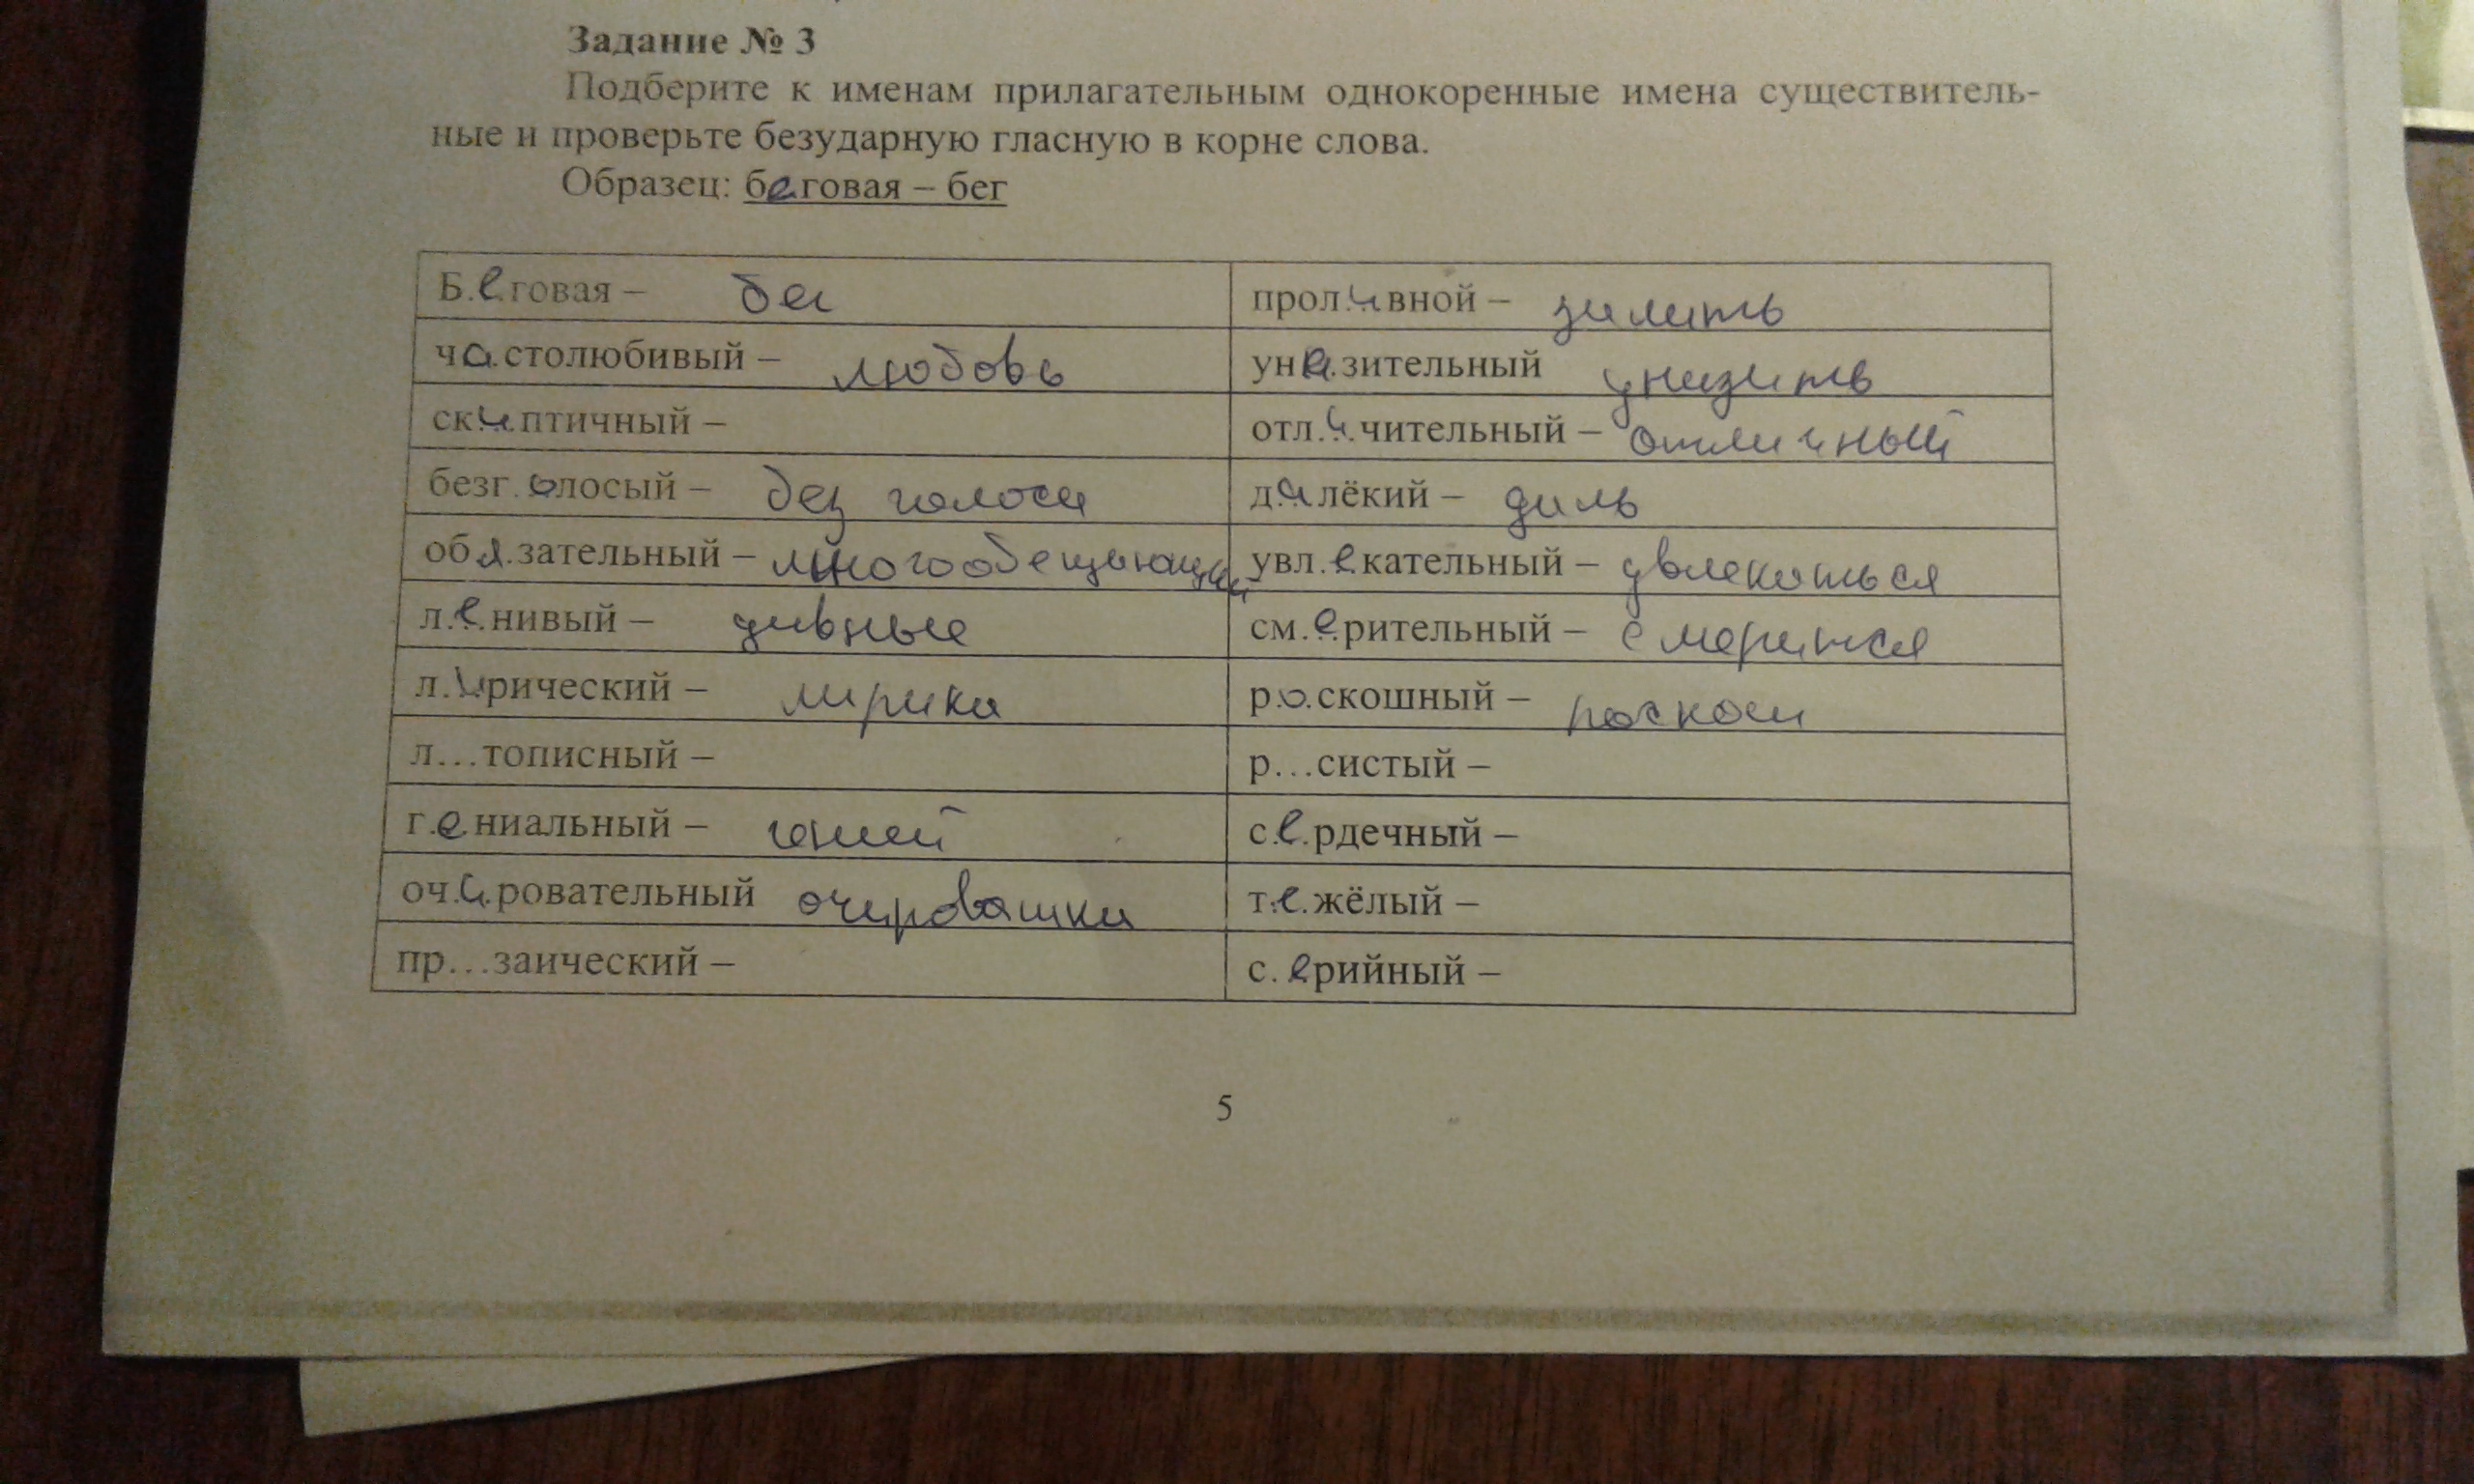 Задание № 3
Подберите к именам прилагательным однокоренные имена существитель-
ные и проверьте безударную гласную в корне слова.
Образец: беговая – бег
Б.е.говая – бег
прол.и.вной – залить
ча.столюбивый – любовь
уни.зительный унизить
ск.и.птичный –
отл.и.чительный – отличный
безг.олосый – без голоса
д.а.лёкий – даль
обя.зательный – многообещающий
увл.е.кательный – увлекаться
л.е.нивый –
см.е.рительный –
л.ирический – лирика
р.о.скошный –
л...тописный –
р...систый –
г.е.ниальный – гений
с.е.рдечный –
оч.а.ровательный очаровашка
т.е.жёлый –
пр...заический –
с.ерийный –
5